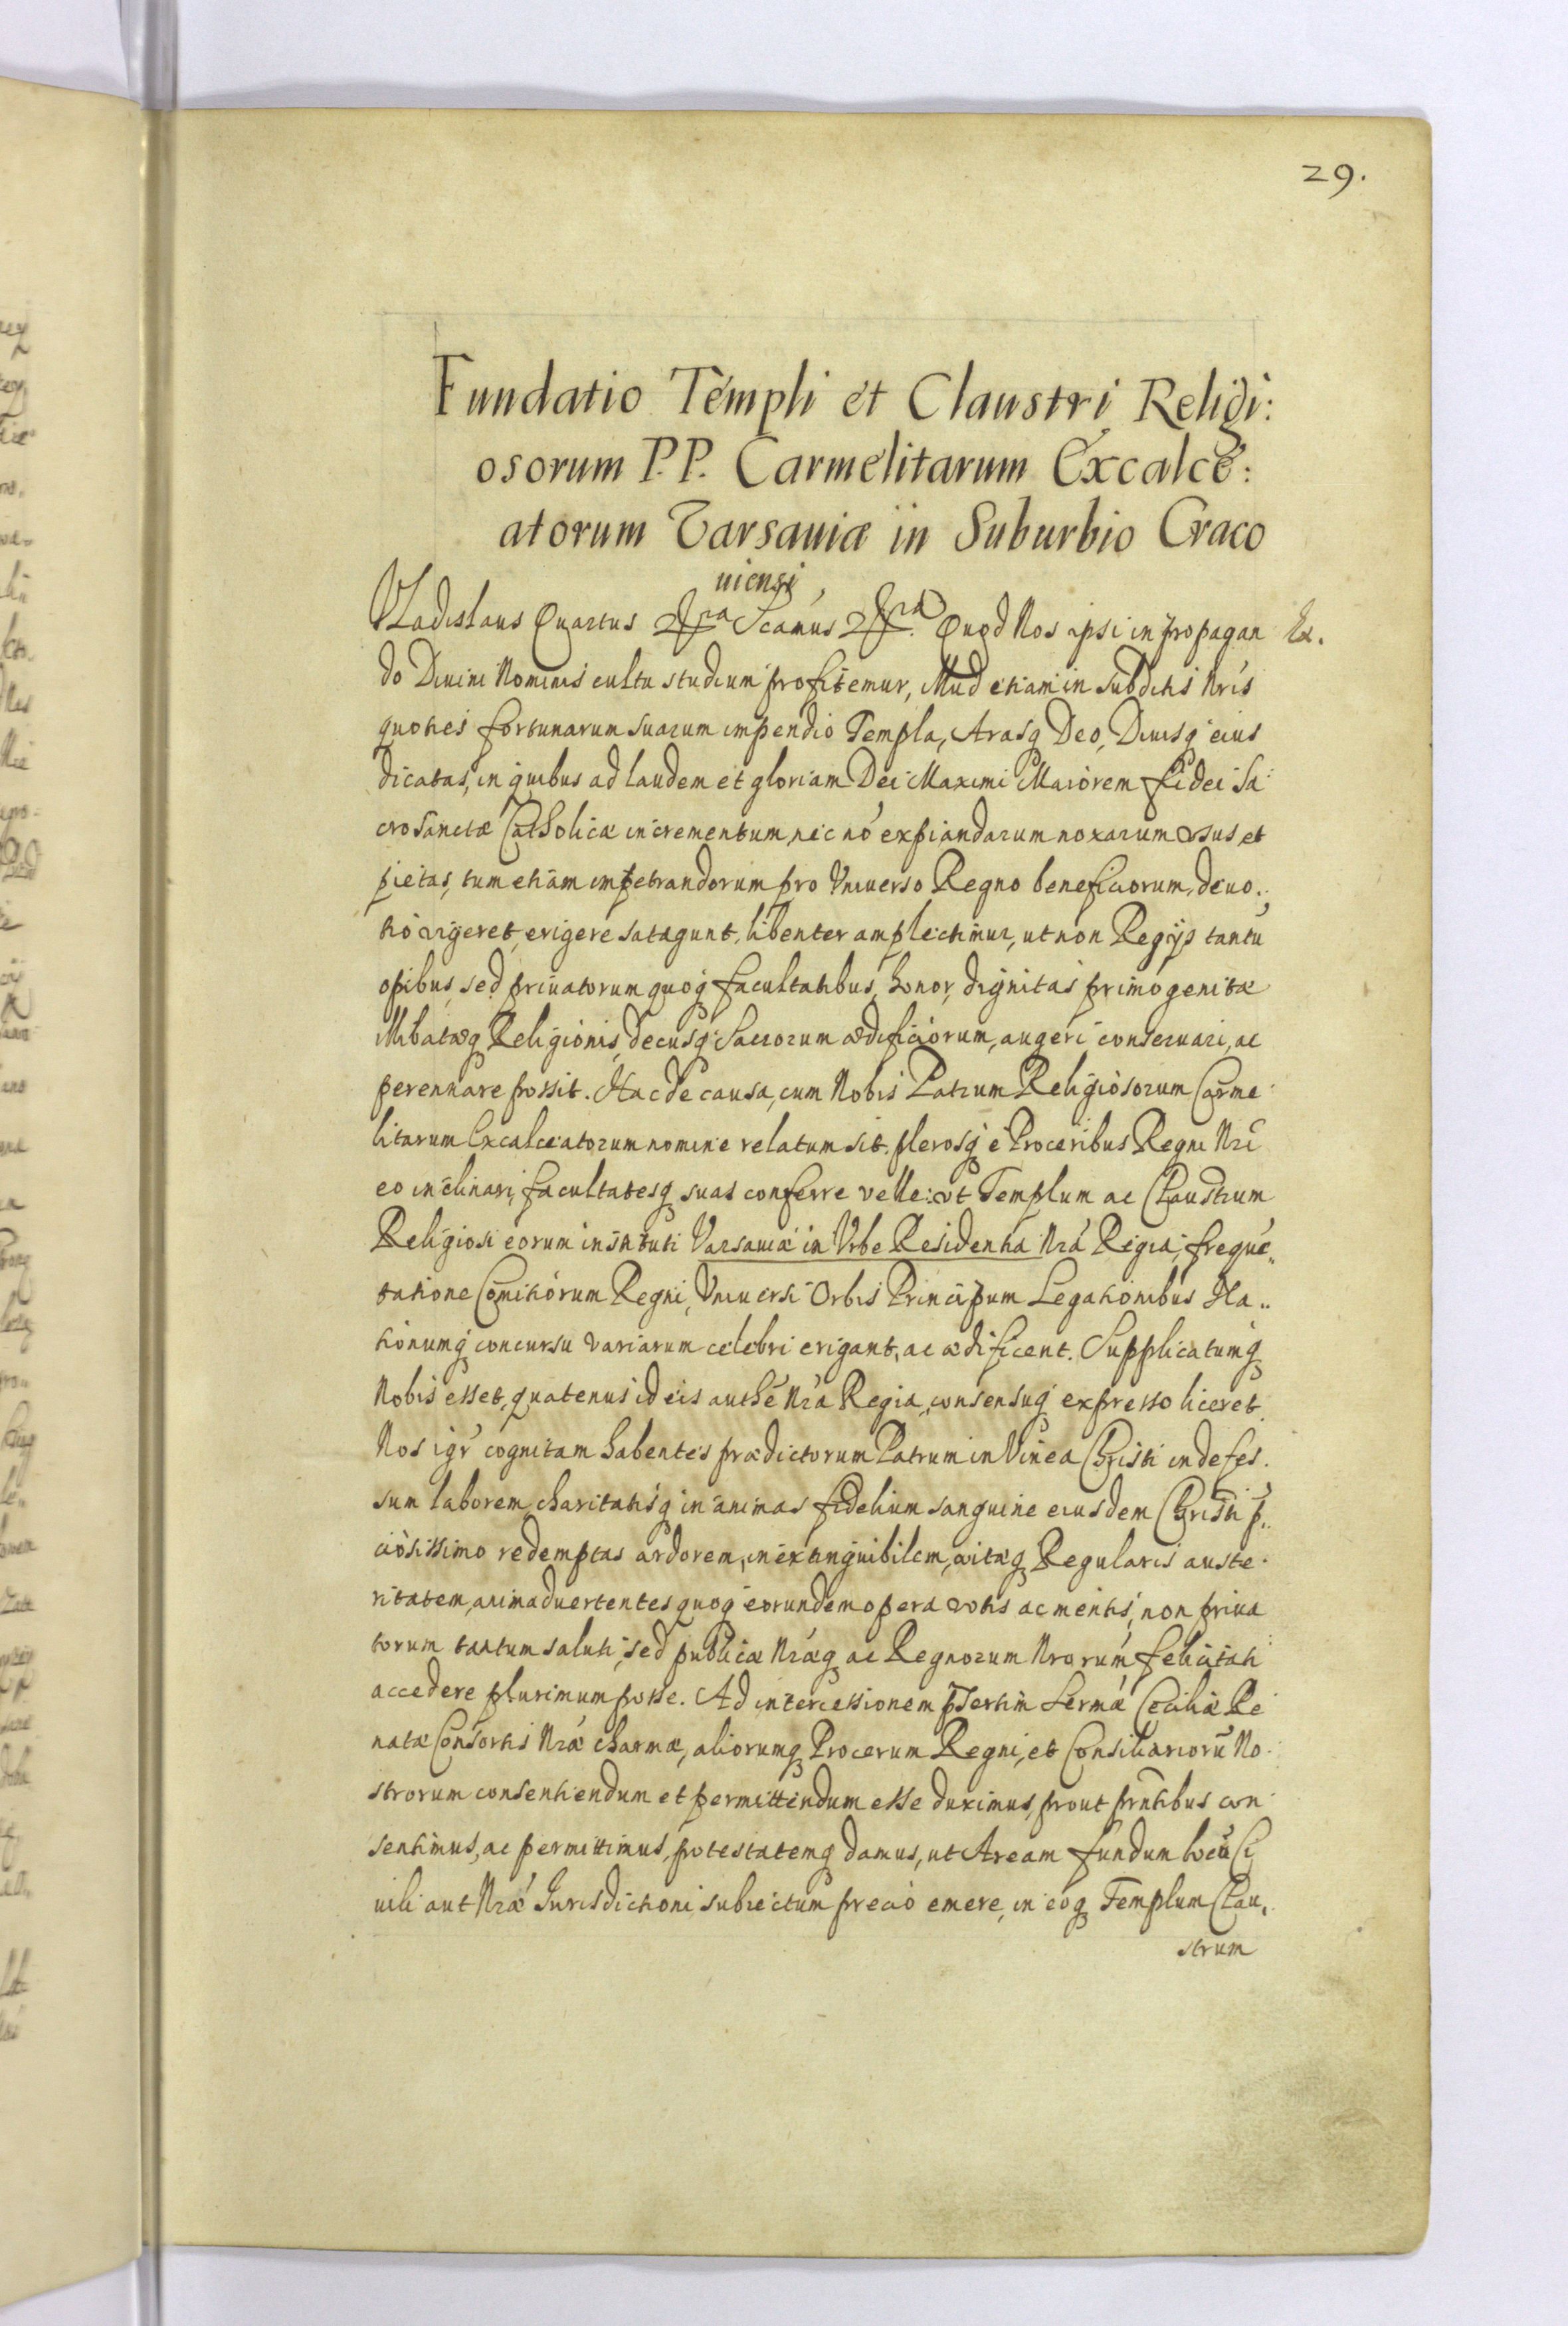 29.
Fundatio Templi et Claustri Religi:
osorum P.P. Carmelitarum Excalce:
atorum Varsauiæ in Suburbio Craco
uiensi
Vladislaus Quartus &ra Scamus &ra Quod Nos ipsi in propagan
do Diuini Nominis cultu studium profitemur, illud etiam in subditis Nris
quoties fortunarum suarum impendio Templa, Arasq Deo, Diuisq eius
dicatas, in quibus ad laudem et gloriam Dei Maximi Maiorem fidei Sa
crosanctæ Catholicæ incrementum, nec nō expiandarum noxarum usus, et
pietas, tum etiam impetrandorum pro Vniuerso Regno beneficiorum, deuo.
tio vigeret, erigere satagunt, libenter amplectimur, ut non Regijs tantū
opibus, sed priuatorum quoq facultatibus, honor, dignitas primogenitæ
Illibatæq Religionis, decusq Sacrorum ædificiorum, augeri conseruari, ac
perennare possit. Hac de causa, cum Nobis Patrum Religiosorum Carme
litarum Excalceatorum nomine relatum sit, plerosq è Proceribus Regni Nri
eo inclinari, facultatesq suas conferre velle: ut Templum ac Claustrum
Religiosi eorum instituti Varsauiæ in Vrbe Residentia Nrá Regia, frequē„
tatione Comitiorum Regni, Vniuersi Orbis Principum Legationibus Na„
tionumq concursu variarum celebri erigant, ac ædificent. Supplicatumq
Nobis esset, quatenus id eis authē Nra Regia, consensuq expresso liceret
Nos igr cognitam habentes prædictorum Patrum in Vinea Christi indefes.
sum laborem, charitatisq in animas fidelium sanguine eiusdem Christi p̄„
ciosissimo redemptas ardorem, inextinguibilem, vitæq Regularis auste.
ritatem, animaduertentes quoq eorundem opera votis ac mentis, non priua
torum tantum saluti, sed publicæ Nræq ac Regnorum Nrorum felicitati
accedere plurimum posse. Ad intercessionem p̄sertim Sermæ Cæciliæ Re
natæ Consortis Nræ charmæ, aliorumq Procerum Regni, et Consiliariorū No
strorum consentiendum et permittendum esse duximus, prout prntibus con
sentimus, ac permittimus, potestatemq damus, ut Aream fundum locū Ci
uili aut Nræ Iurisdictioni subiectum precio emere, in eoq Templum Clau„
strum